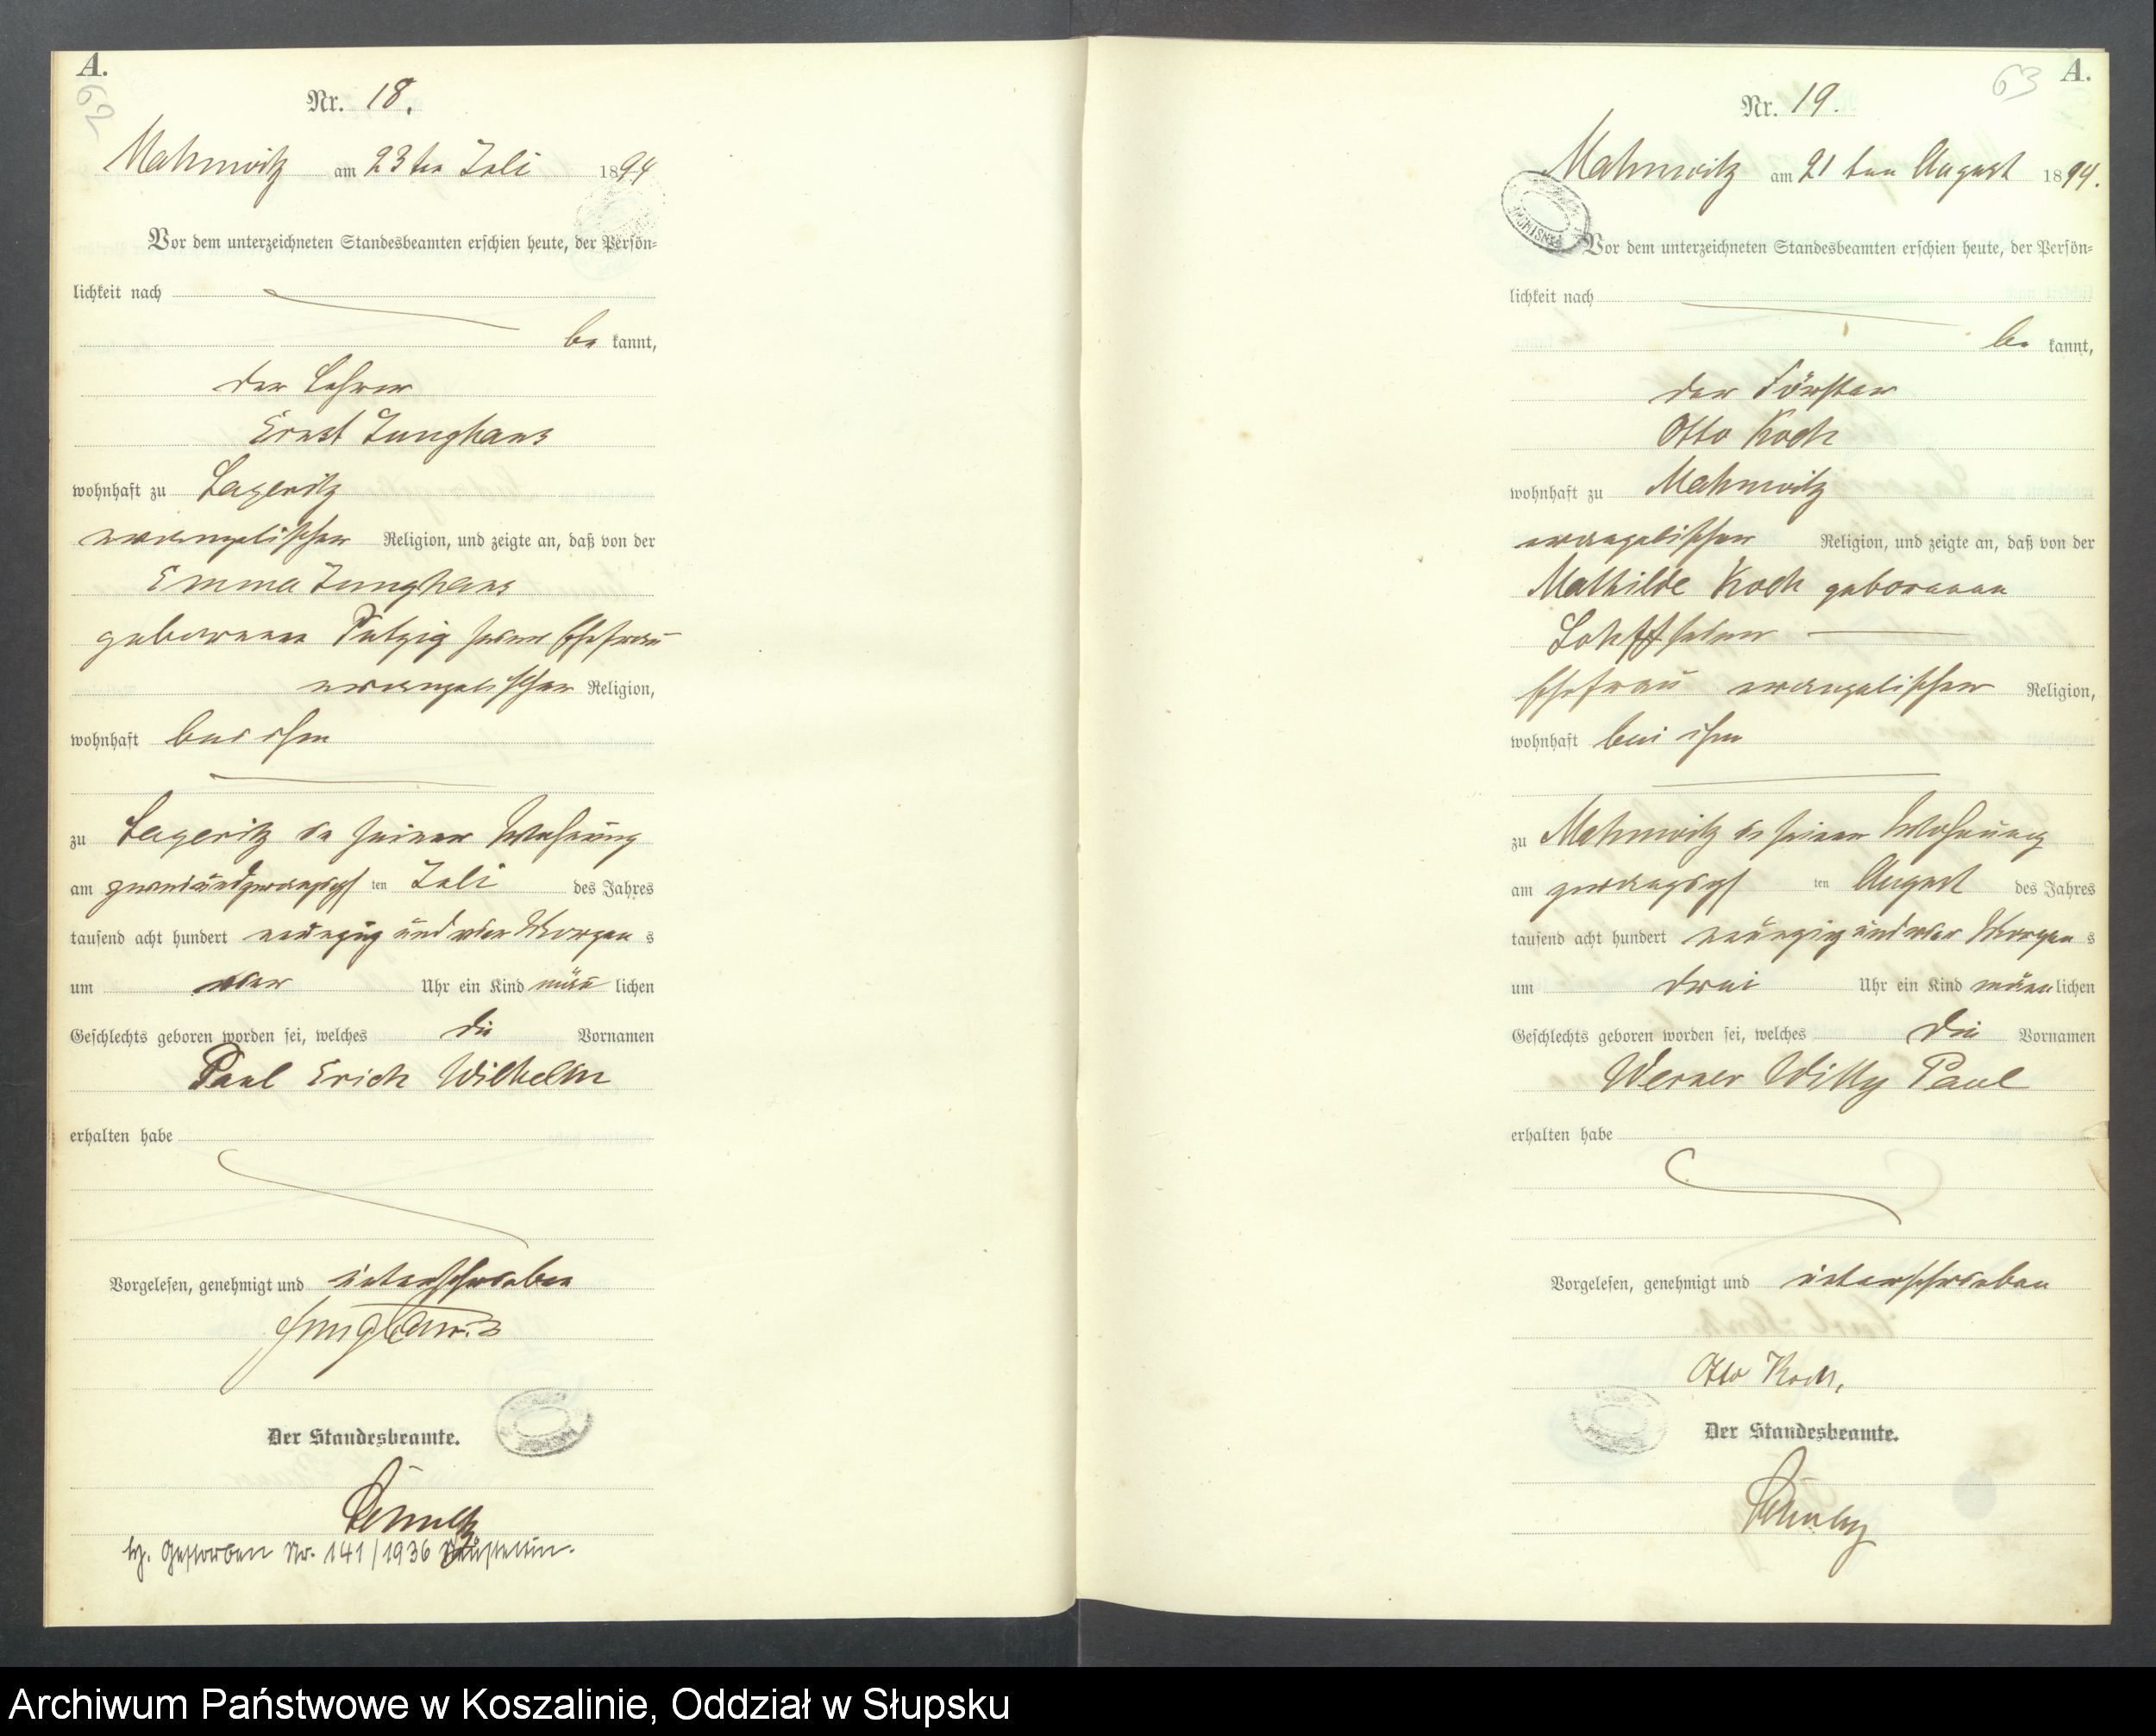 A.
62
Nr. 18.
Mahnwitz am 23ten Juli 1894
Vor dem unterzeichneten Standesbeamten erschien heute, der Persön-
lichkeit nach
be kannt,
der Lehrer
Ernst Junghans
wohnhaft zu Lageritz
evangelischer Religion, und zeigte an, daß von der
Emma Junghans
geborenen Putzig seiner Ehefrau
evangelischer Religion,
wohnhaft bei ihm
zu Lageritz in seiner Wohnung
am zweiundzwanzigsten Juli des Jahres
tausend acht hundert neunzig und vier Morgens
um vier Uhr ein Kind männlichen
Geschlechts geboren worden sei, welches die Vornamen
Paul Erich Wilhelm
erhalten habe
Vorgelesen, genehmigt und unterschrieben
Junghans
Der Standesbeamte.
gestorben Nr. 141/1936 Neustettin.
63
A.
Nr. 19.
Mahnwitz am 21ten August 1894.
PAŃSTWOWE
Vor dem unterzeichneten Standesbeamten erschien heute, der Persön-
lichkeit nach
be kannt,
der Förster
Otto Koch
wohnhaft zu Mahnwitz
evangelischer Religion, und zeigte an, daß von der
Mathilde Koch geborenen
seiner
Ehefrau evangelischer Religion,
wohnhaft bei ihm
zu Mahnwitz in seiner Wohnung
am zwanzigsten August des Jahres
tausend acht hundert neunzig und vier Morgens
um drei Uhr ein Kind männlichen
Geschlechts geboren worden sei, welches die Vornamen
Werner Willy Paul
erhalten habe
Vorgelesen, genehmigt und unterschrieben
Otto Koch,
Der Standesbeamte.
Archiwum Państwowe w Koszalinie, Oddział w Słupsku